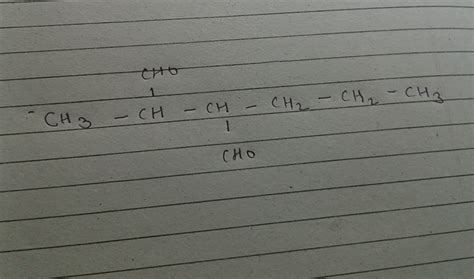 CHO
CH3 - CH - CH - CH2 - CH2 - CH3
CHO